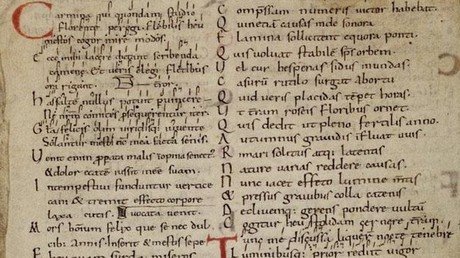 Carmina qui quondam studio
Florente peregi. Flebilis heu
mestos cogor inire modos.
Ecce mihi lacere scribenda
camene. Et ueris elegi fletibus
ora rigant.
has nullus potuit
Ne comites psequerentur iter.
Gla felicis olim uiridisq iuuente
Solantur mestos mea senis.
Uenit enim pperata malis inopina
&dolor &ate iussit inesse suam.
Intempestiui funduntur uertice
cani & tremit effeto corpore
laxa cutis. uocata uenit.
Mors hominu felix que se nec dul
cib; Annis Inserit & mestis sepe
Comprensam numeris uictor habebat.
Quin&iam causas unde sonora
Flamina sollicitent equora ponti.
Quis uoluat stabile sps orbem.
Uel cur hesperias sidus in undas.
Casuru rutilo surgat abortu
Quid ueris placidas temp& horas.
Ut teram roseis floribus orn&.
Quis dedit ut pleno fertilis anno
Autumnus grauidis influat uuis.
Rimari solitus atq; latentis
Nature uarias reddere causas.
Nunc iac& effeto lumine mentis
& pressus grauibus colla catenis
Decliuemq; gerens pondere uultu
Cogitur heu stolidam cernere terram.
Tunc me
Luminibusq; prior redit uigor